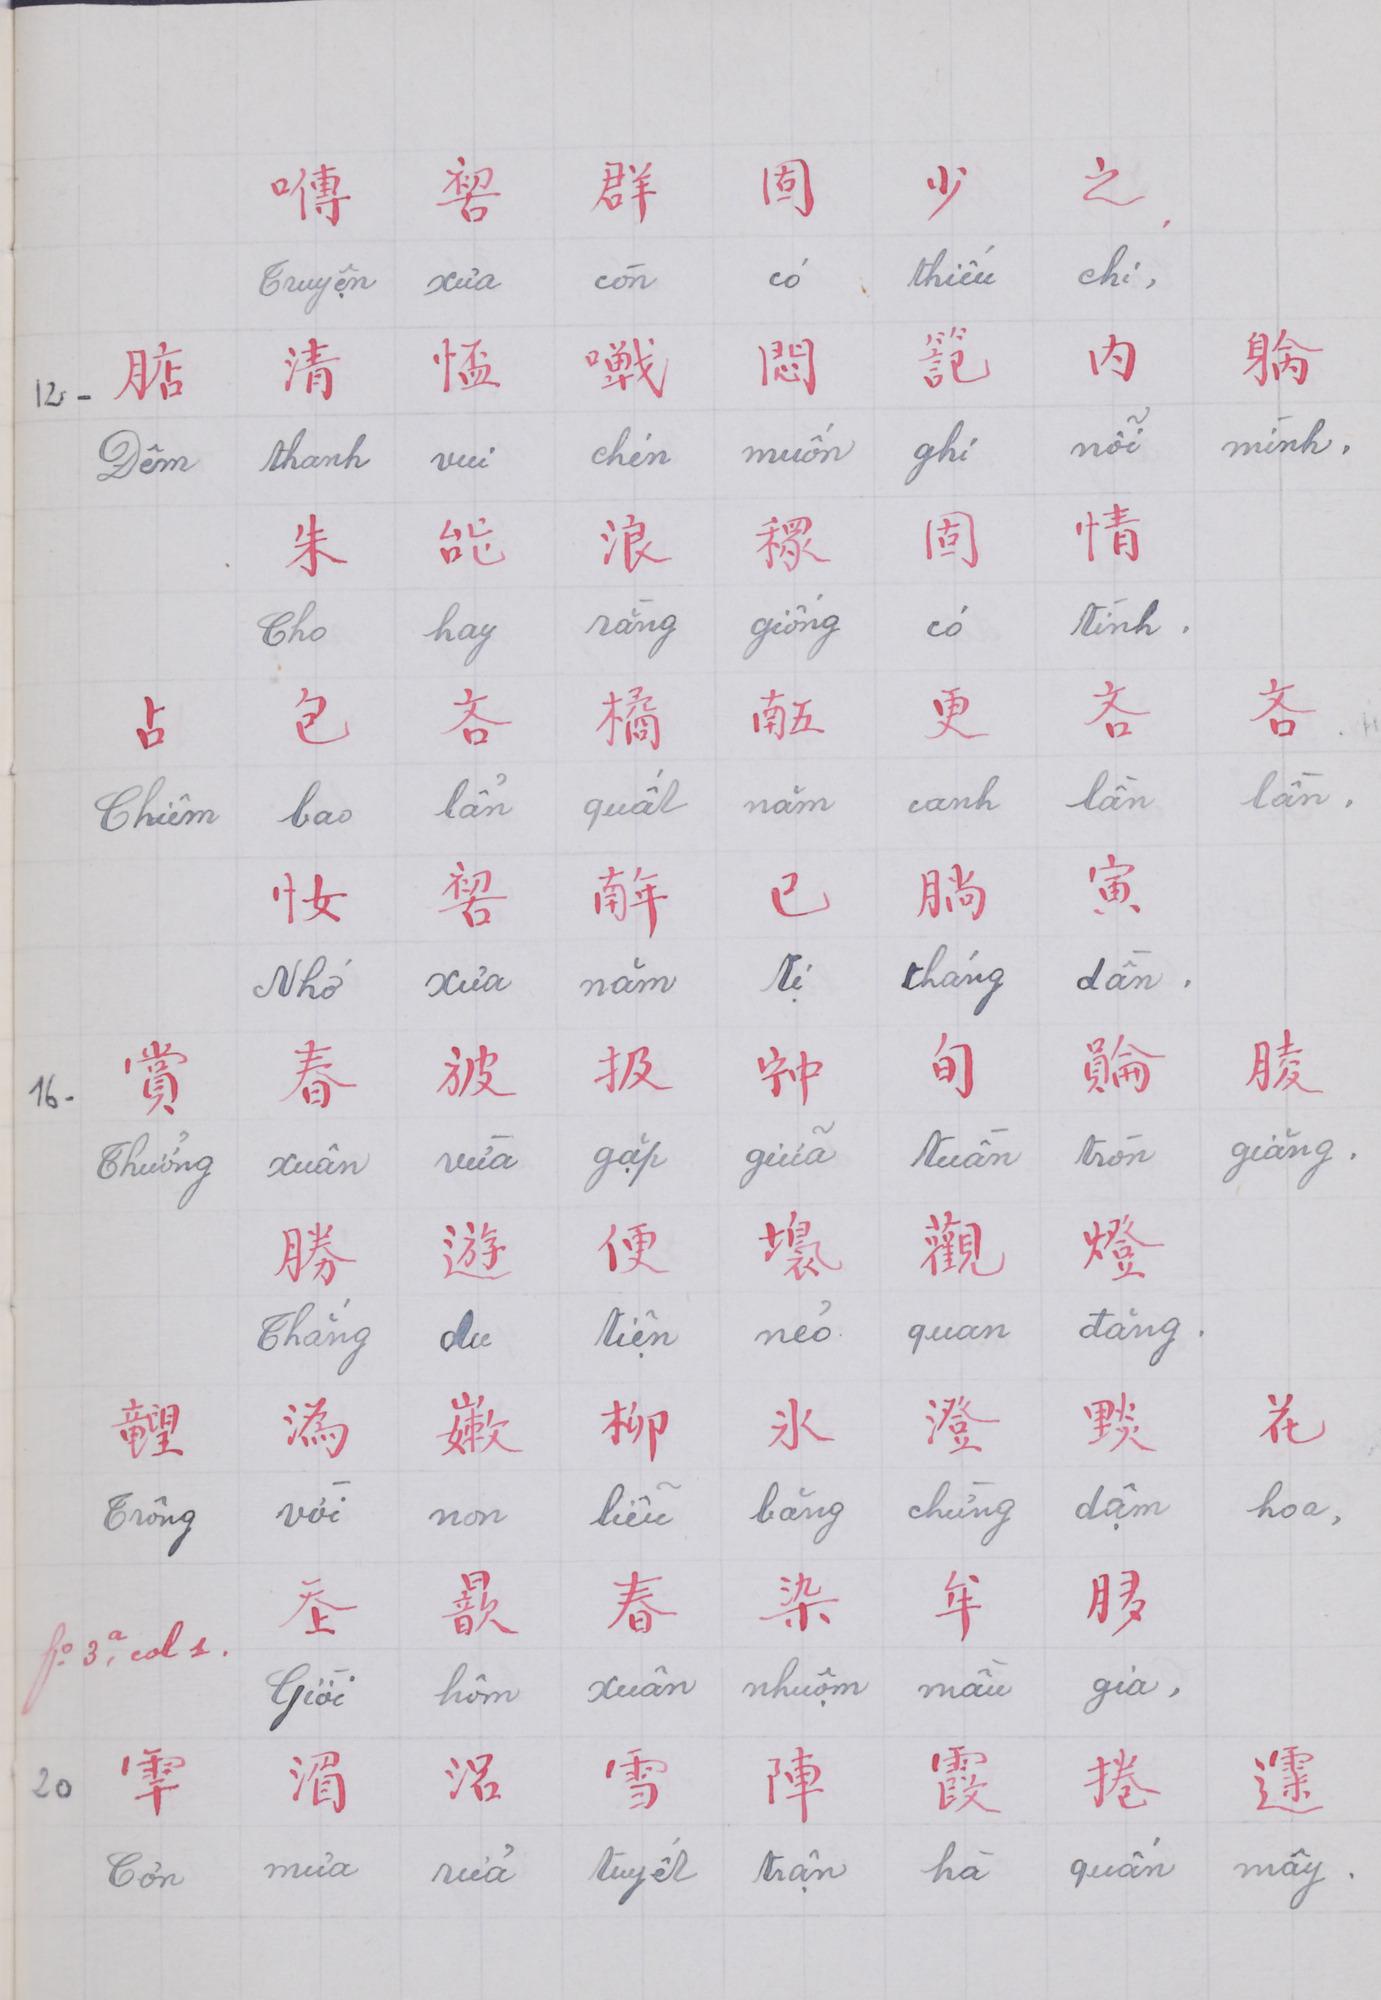 𠸗 𠸗 群 固 少 之,
Truyện xưa còn có thiếu chi,
12- 𣎀 清 𢝙 𠻗 悶 𥱬 内 𨉟
Đêm thanh vui chén muốn ghi nỗi mình.
朱 𫨩 浪 𥠭 固 情
Cho hay rằng giống có tình.
占 包 吝 橘 𠄼 更 吝 吝
Chiêm bao lẩn quất năm canh lần lần.
𢖵 𠸗 𢆥 巳 𣎃 寅
Nhớ xưa năm tị tháng dần.
16- 賞 春 𣃣 扱 𡨌 旬 𧷺 𦝄
Thưởng xuân vừa gặp giữa tuần tròn giăng.
勝 遊 便 𡑖 觀 燈
Thắng du tiện nẻo quan đăng.
𥊣 潙 𡽫 柳 氷 澄 𨤮 花
Trông vời non liễu băng chừng dặm hoa,
𡗶 歆 春 染 牟 𦙫
Giời hôm xuân nhuộm mầu gia,
fo. 3a, col 1.
20 𩂀 湄 沼 雪 陣 霞 捲 𩄲
Cơn mưa rửa tuyết trận hà quấn mây.